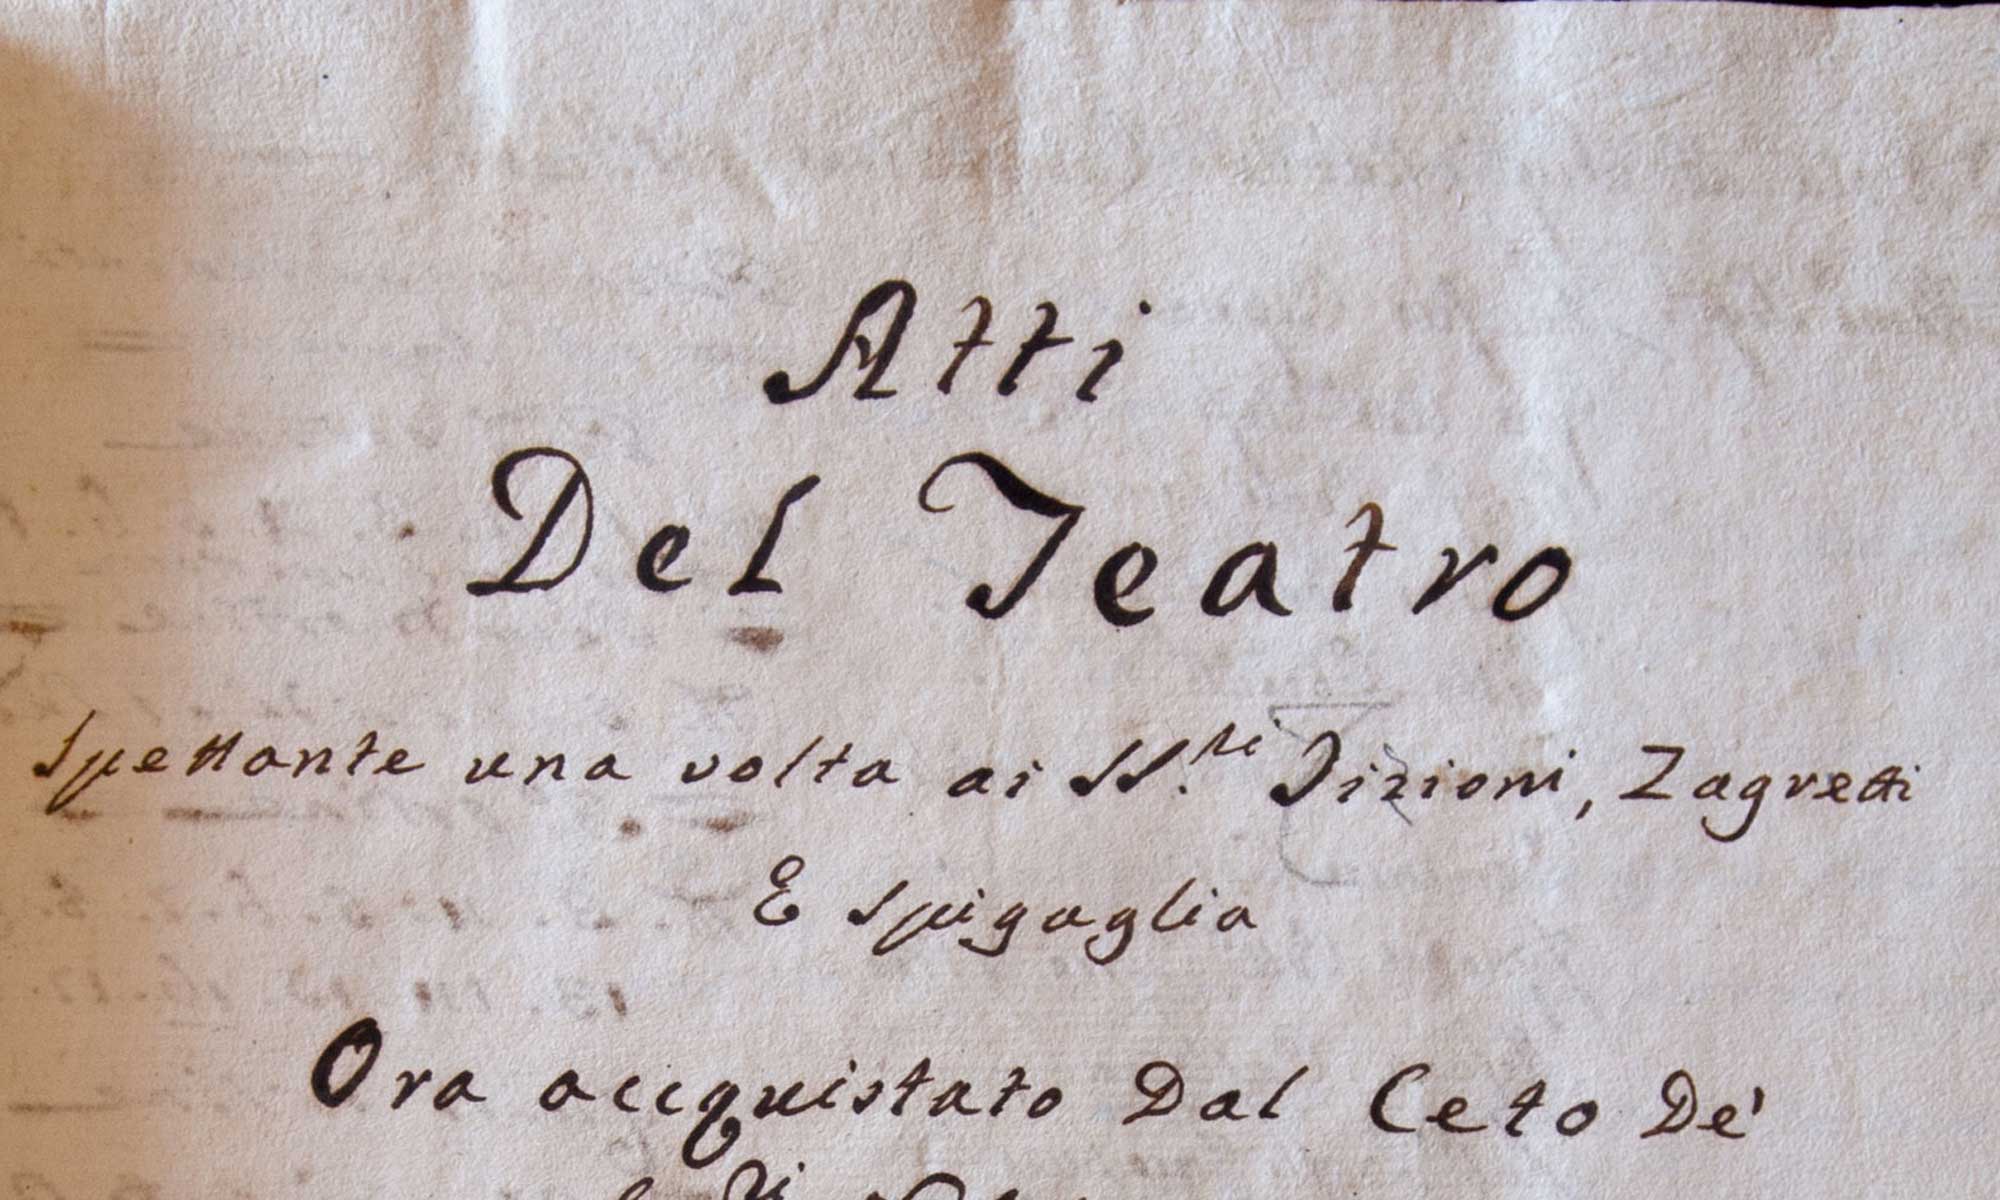 Atti
Del Teatro
Spettante una volta ai SS.ri Tizioni, Zagretti
E Spigaglia
Ora acciquistato Dal Ceto De'